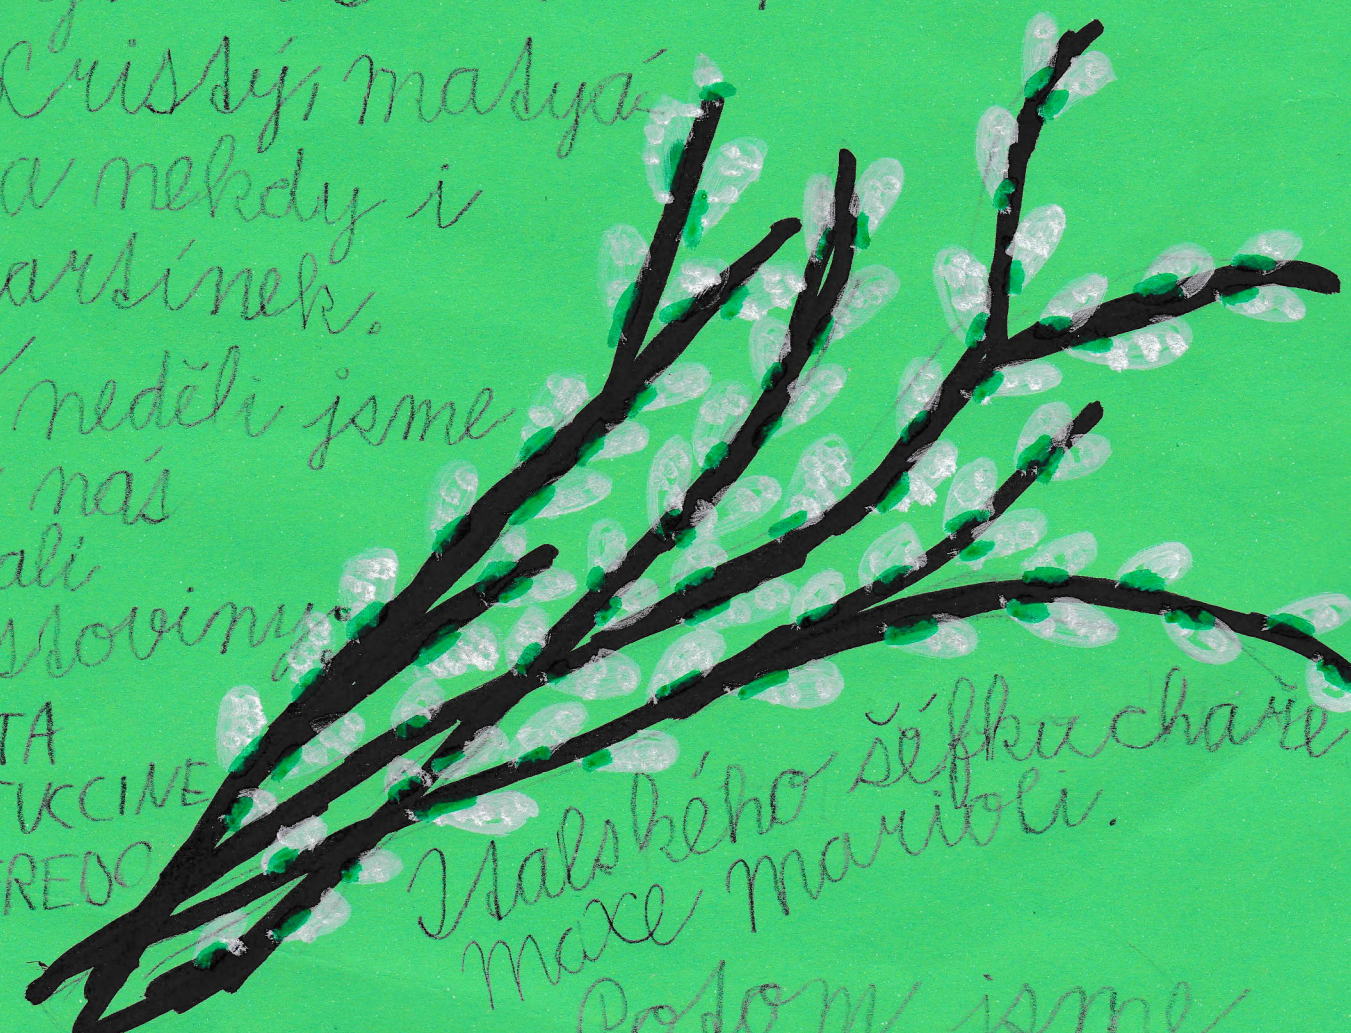 Cristý, matyá
a nekdy i
artínek.
neděli jsme
nás
ali
stoviny
TA
TUCCINE
FREDO
Italského šéfkuchaře
maxe marioli.
Potom jsme